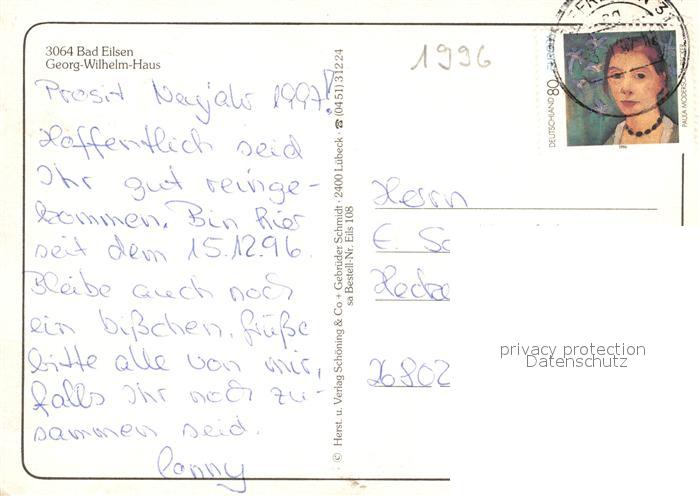 3064 Bad Eilsen
Georg-Wilhelm-Haus
1996
Prosit Neujahr 1997!
Hoffentlich seid
Ihr gut reinge-
kommen. Bin hier
seit dem 15.12.96.
Bleibe auch noch
ein bißchen. Grüße
bitte alle von mir,
falls Ihr noch zu-
sammen seid.
Conny
© Herst. u. Verlag Schöning & Co + Gebrüder Schmidt · 2400 Lübeck · ☎ (04 51) 3 12 24
sa Bestell-Nr. Eils 108
DEUTSCHLAND 80 EUROPA
PAULA MODERSOHN-BECKER
1996
Herrn
E. Sc
Hecke
26802
privacy protection
Datenschutz